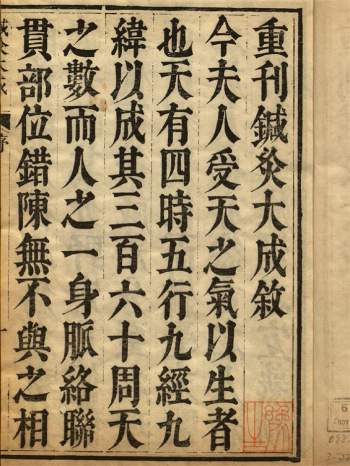 重刊鍼灸大成敘
今夫人受天之氣以生者
也天有四時五行九經九
緯以成其三百六十周天
之數而人之一身脈絡聯
貫部位錯陳無不與之相